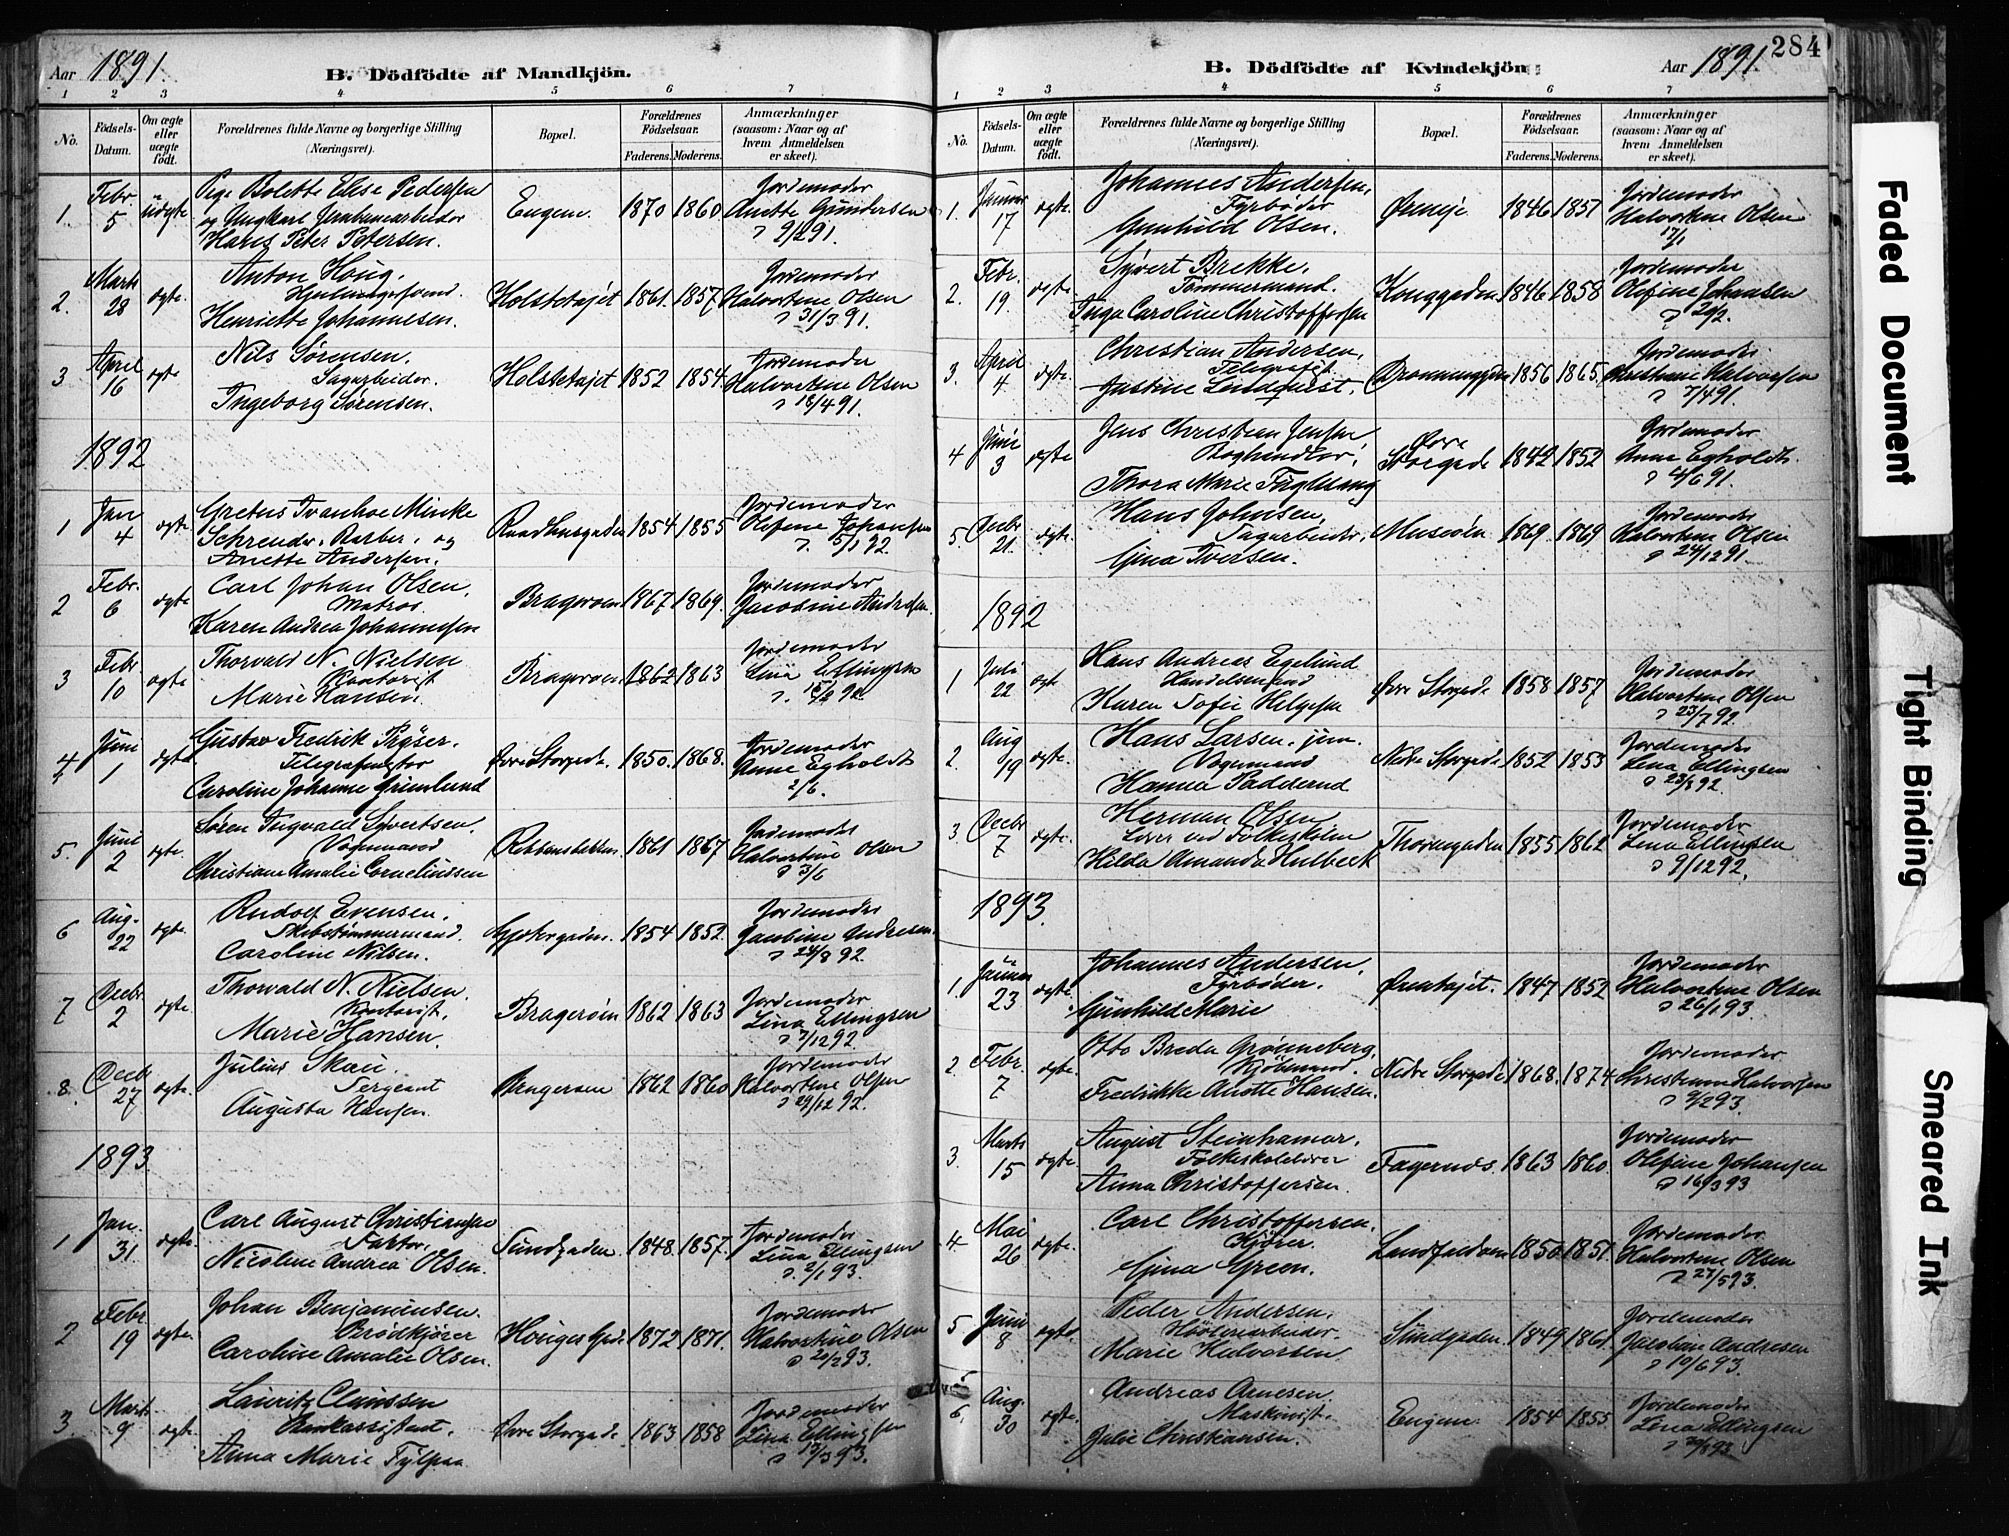 Aar 1891.
B. Dödfödte af Mandkjön.
1 2 3 4 5 6 7
No.
Födsels-Datum.
Om ægte eller uægte födt.
Forældrenes fulde Navne og borgerlige Stilling (Næringsvei).
Bopæl.
Forældrenes Födselsaar.
Faderens. Moderens.
Anmærkninger (saasom: Naar og af hvem Anmeldelsen er skeet).
1. Febr. 5 uægte Pige Bolette Elise Pedersen Eugene. 1870 1860 Jordemoder
og Ungkarl Jernbanearbeider Anette Gundersen
Hans Peter Petersen. 9/2 91.
2. Marts 28 ægte. Anton Houg. Holstetøiet 1861. 1857 Jordemoder
Halvorine Olsen
Henriette Johannesen. 31/3 91.
3 April 16 ægte Nils Sørensen. Holstetøiet 1852 1854. Jordemoder
Sagarbeider. Halvorine Olsen
Ingeborg Sørensen. 18/4 91.
1892
1 Jan 4 ægte. Gretus Ivanhoe Minke Raadhusgaden 1854 1855 Jordemoder
Schreuder. Barber. og Olefine Johansen
Anette Andersen. 5/1 92.
2 Febr. 6 ægte Carl Johan Olsen. Bragerøen 1867 1869. Jordemoder
Matros. Jacobine Andresen.
Karen Andrea Johannesen
3 Febr. 10 ægte Thorvald N. Nielsen Bragerøen 1862 1863 Jordemoder
Kontorist Lina Ellingsen
Marie Hansen.
4 Juni 1 ægte Gustav Fredrik Prøser. Øvre Storgade. 1850. 1868. Jordemoder
Anne Egholdt
Caroline Johanne Grimlund 2/6.
5. Juni 2 ægte. Søren Ingvald Syvertsen. 1861 1867 Jordemoder
Vognmand Halvorine Olsen
Christiane Amalie Corneliussen 3/6
6 Aug. 22 ægte. Rudolf Evensen. 1854 1852. Jordemoder
Skibstømmermand. Jacobine Andresen.
Caroline Nilsen. 24/8 92.
7 Decbr. 2 ægte. Thorvald N. Nielsen. Bragerøen 1862 1863 Jordemoder
Kontorist. Lina Ellingsen
Marie Hansen. 7/12 92
8. Decb 27 ægte. Julius Skau. Bragerøen 1862 1860 Jordemoder
Sergeant Halvorine Olsen
Augusta Hansen. 29/12 92.
1893
1 Jan. 31. ægte. Carl August Christiansen Sundgaden. 1848. 1857. Jordemoder
Faktor. Lina Ellingsen
Nicoline Andrea Olsen. 2/1 93.
2 Febr 19 ægte. Johan Benjaminsen. 1872 1871. Jordemoder
Brødkjører Halvorine Olsen
Caroline Amalie Olsen. 20/2 93.
3. Marts 9 ægte Lauritz Claussen Øvre Storgade 1863 1858 Jordemoder
Bankassistent. Lina Ellingsen
Anna Marie 13/3 93.
284
B. Dödfödte af Kvindekjön.
Aar 1891.
1 2 3 4 5 6 7
No.
Födsels-Datum.
Om ægte eller uægte födt.
Forældrenes fulde Navne og borgerlige Stilling (Næringsvei).
Bopæl.
Forældrenes Födselsaar.
Faderens. Moderens.
Anmærkninger (saasom: Naar og af hvem Anmeldelsen er skeet).
1. Januar 17 ægte. Johannes Andersen, 1846 1851 Jordemoder
Fyrbøder Halvorine Olsen
Gunhild Olsen. 17/1
2. Febr. 19. ægte. Syvert Brekke. Konggaden 1846 1858 Jordemoder
Tømmermand. Olefine Johansen
Inga Caroline Christoffersen 20/2.
3. April 4 ægte. Christian Andersen, Dronninggaden 1856 1865. Jordemoder
Telegrafist Christiane Halvorsen
Justine Lindquist. 7/4 91.
4 Juni 3 ægte Jens Christian Jensen Øvre Storgade 1842 1852 Jordemoder
Boghandler. Anne Egholdt.
Thora Marie Fuglesang 4/6 91.
5. Decbr 21. ægte. Hans Johnsen. Museøen 1869. 1869 Jordemoder
Sagarbeider. Halvorine Olsen
Gina Iversen. 24/12 91.
1892
1 Juli 22 ægte Hans Andreas Egelund Øvre Storgade 1858 1857 Jordemoder
Handelsmand Halvorine Olsen
Karen Sofie Helgesen 23/7 92.
2. Aug 19 ægte. Hans Larsen. jun. Nedre Storgade 1852 1853 Jordemoder
Vognmand Lina Ellingsen
Hanna Padderud 23/8 92.
3 Decbr 7 ægte. Herman Olsen Thornegaden 1855 1862 Jordemoder
Lærer ved Folkeskolen Lina Ellingsen
Hilda Amanda Hulbeck 9/12 92.
1893.
1. Januar 23 ægte. Johannes Andersen. 1847 1852 Jordemoder
Fyrbøder. Halvorine Olsen
Gunhild Marie 26/1 93.
2. Febr. 7 ægte. Otto Breda Grønneberg. Nedre Storgade 1868. 1874 Jordemoder
Kjøbmand. Christiane Halvorsen
Fredrikke Anette Hansen. 9/2 93.
3. Marts 15 ægte. August Steinhamar. Fagernes. 1863 1860 Jordemoder
Folkeskolelærer Olefine Johansen
Anna Christoffersen. 16/3 93
4. Mai 26 ægte. Carl Christoffersen. Landfaldøen 1850 1851. Jordemoder
Kjører. Halvorine Olsen
Gina Green. 27/5 93.
5 Juni 8 ægte Peder Andersen. Sundgaden. 1849 1861 Jordemoder
Høvleriarbeider. Jacobine Andresen
Marie Halvorsen. 10/6 93.
6. Aug. 30 ægte. Andreas Arnesen. Eugene. 1854 1855 Jordemoder
Maskinist. Lina Ellingsen
Julie Christiansen.
Faded Document
Tight Binding
Smeared Ink